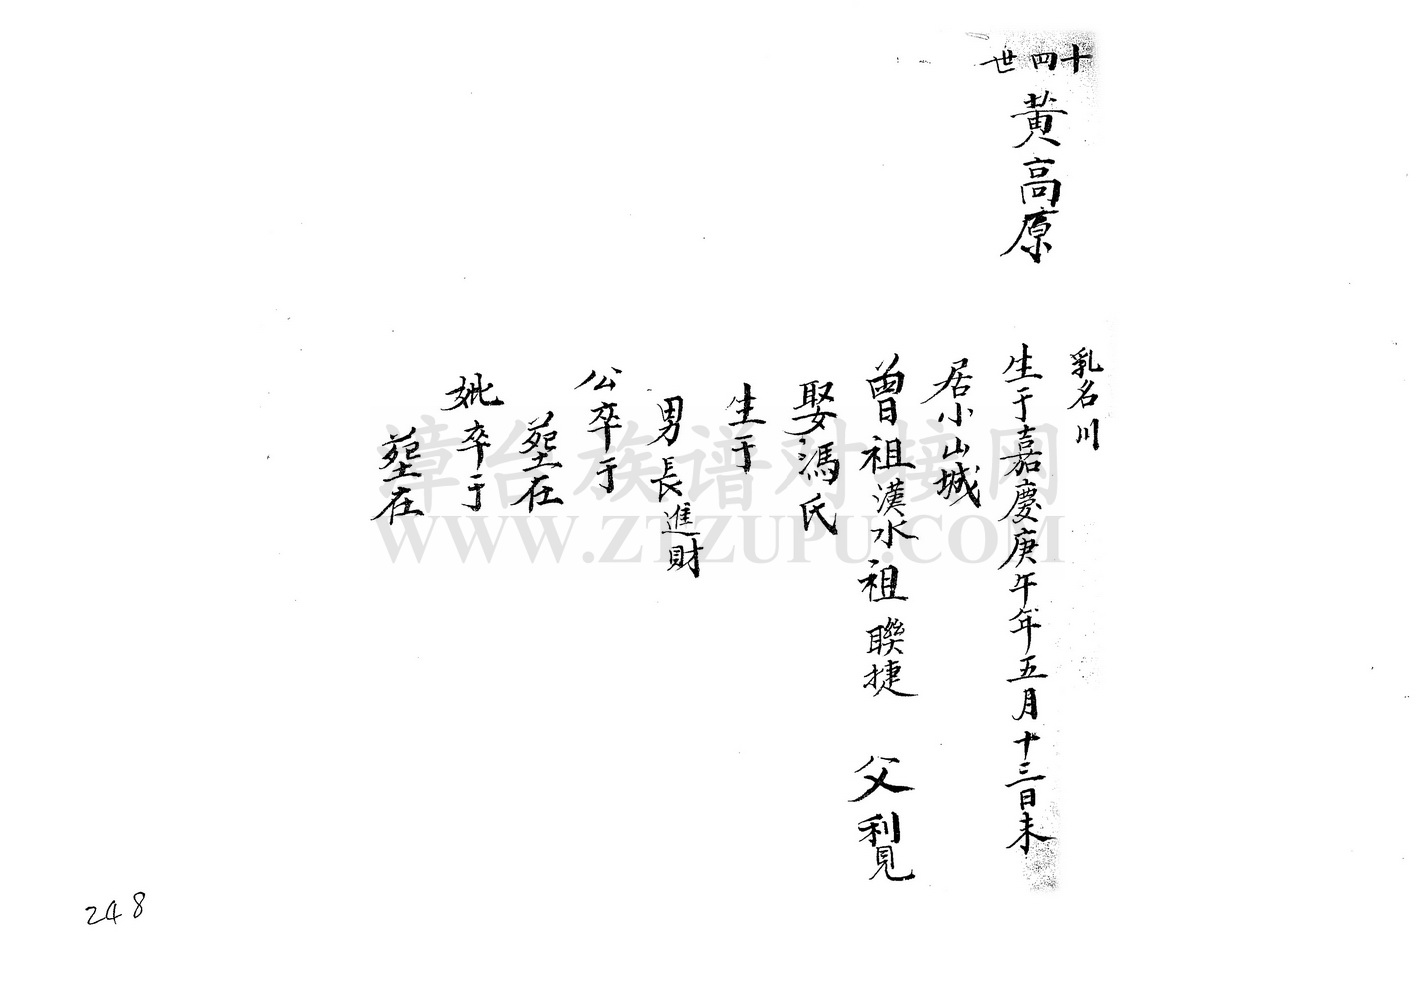 十四世
黄高原
乳名川
生于嘉慶庚午年五月十三日未
居小山城
曽祖漢水祖聯捷 父利見
娶馮氏
生于
男長進財
公卒于
塟在
妣卒于
塟在
漳台族谱对接网
WWW.ZTZUPU.COM
248